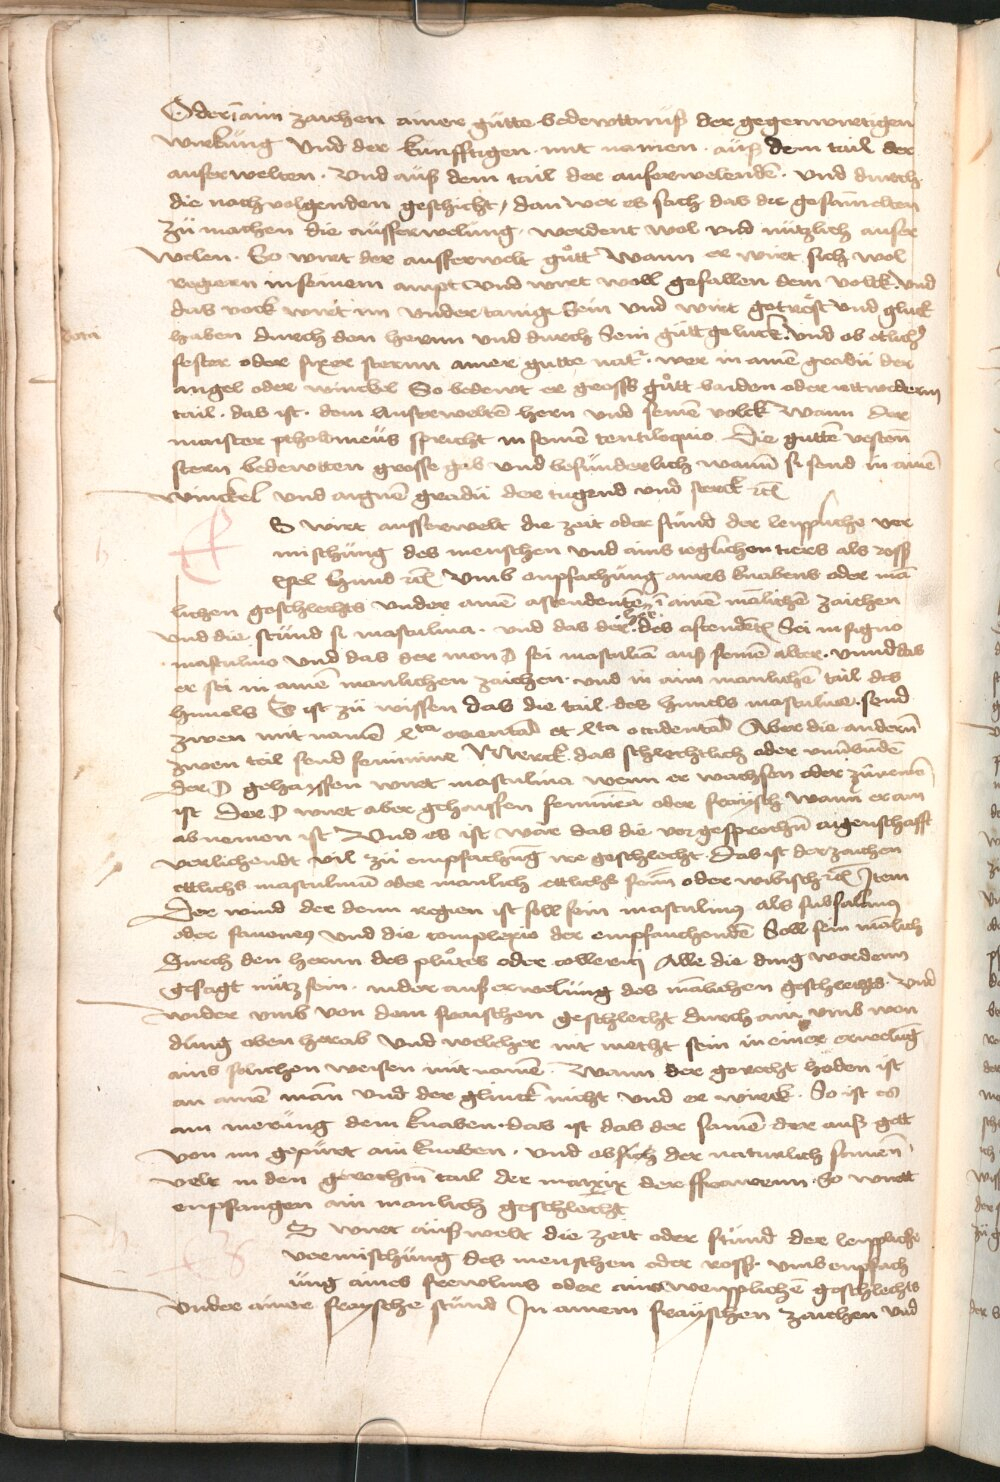 Oder ain zaichen ainer gütte bedewttnüß der gegenwirtigen
würküng Vnd der kunfftigen mit namen · auß dem tail der
außerwelten · Vnd auß dem tail der außerwelenden · Vnd durch
die nachvolgenden geschicht / dan wer es sach das die gesamelten
zü machen die ausserwelüng · werdent wol vnd nützlich außer
welen · So wirt der ausserwelt gůtt Wann er wirt sich wol
regiern in seinem ampt Vnd wirt woll gefallen dem volck Vnd
das vock wirt im Vndertanig Sein Vnd wirt getröst Vnd glück
haben durch den herrn Vnd durch Sein gütt gelück Vnd ob etlich
fester oder fixer stern ainer gutte nat · wer in aine gradü der
angel oder winckel So bedewt er gross gůtt baiden oder iettwederm
tail · das ist · dem Ausserwelte hern Vnd seine volck Wann der
maister ptholomeüs spricht in seine centiloquio Die gutte vesten
stern bedewtten grosse gab Vnd besünderlich wann si send in aine
winckel Vnd aigne gradü der tugend Vnd sterck etc
S wirt ausserwelt die zeit oder stünd der leypliche ver
mischüng des menschen Vnd ains ieglichen tiers als ross
Esel Hund etc Vmb enpfachüng aines knabens oder ma
lichen geschlechts Vnder aine ascendente in ainen malichen zaichen
Vnd die stünd si masculina · Vnd das der her des ascendete Sei in signo
masculino Vnd das der mon ☽ sei masculin auß seinem alter · Vnnd das
er sei in aine manlichen zaichen · Vnd in aim manlichen tail des
himels Es ist zü wissen das die tail des himels masculine · send
zwen mit name 4ta oriental et 4ta occidental Aber die andern
zwen teil send feminine Merck das schlechtlich oder
der ☽ gehayssen wirt masculina wenn er wachsen oder zünemen
ist Der ☽ wirt aber gehaissen feminea oder fraysch Wann er am
abnemen ist Vnd es ist war das die vorgesprochen aigenschafft
verlichendt vil zü empfachüng ire geschlecht · Das ist der zaichen
ettlichs masculinum oder manlich ettlichs fem oder wibisch etc Item
Der wind der denn regiert ist soll sein masculinus als subsolanus
oder favonius Vnd die complexio der empfauchenden Soll sein malich
Durch den herrn des plůtes oder colleru Alle die ding werdenn
gesagt nütz sein · in der außerwelüng des malichen geschlechts Vnd
wider vmb von dem fraischen geschlecht durch ain vmb won
dlüng oben herab Vnd welcher nit mecht sein in einer erwelüng
ains solichen weisen mit name · Wann der gerecht hoden ist
an aine man Vnd der glinck nicht Vnd er wirck · So ist es
am merüng dem knaben · das ist das der samen der auß gett
von im gepürt ain knaben · Vnd ob sich der naturlich samen
velt in den gerechten tail der matrix der ffrawenn · So wirtt
enpfangen ain manlich geschlecht
S wirt aüßwelt die zeit oder stünd der leypliche
vermischüng des menschen oder ross · vmb enpfach
üng aines frewlins oder ains weypliche geschlechts
Vnder ainer fraysche stünd In ainem frayschen zaichen Vnd